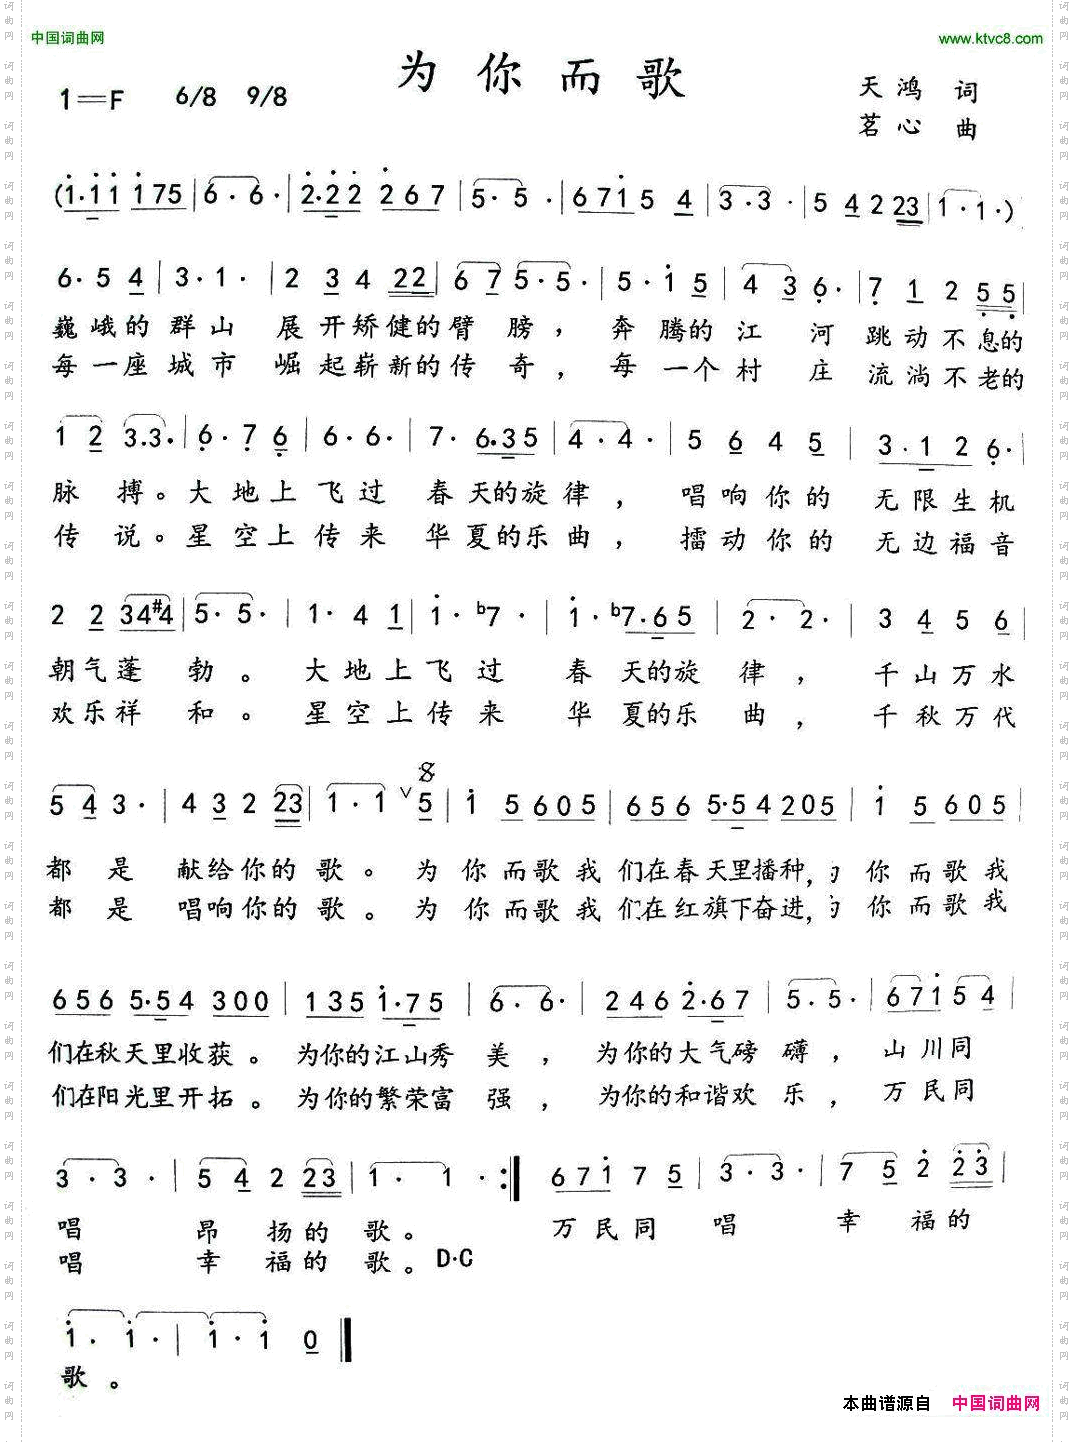 中国词曲网
www.ktvc8.com
为你而歌
1=F 6/8 9/8
天鸿 词
茗心 曲
(1·11 175|6·6·|2·22 267|5·5·|6715 4|3·3·|54223|1·1·)
6·54|3·1·|23422|675·5·|5·15|436·|7 1 2 55|
巍峨的群山 展开矫健的臂膀，奔腾的江河跳动不息的
每一座城市 崛起崭新的传奇，每一个村庄流淌不老的
12 3·3·|6·76|6·6·|7·6·35|4·4·|5645|3·126·|
脉搏。大地上飞过 春天的旋律，唱响你的 无限生机
传说。星空上传来 华夏的乐曲，擂动你的 无边福音
2 2 34#4|5·5·|1·41|1·b7·|1·b7·65|2·2·|3456|
朝气蓬勃。大地上飞过 春天的旋律，千山万水
欢乐祥和。星空上传来 华夏的乐曲，千秋万代
543·|43223|1·1 ∨5|1 5605|656 5·54 205|1 5605|
都是 献给你的歌。为你而歌我们在春天里播种，为你而歌我
都是 唱响你的歌。为你而歌我们在红旗下奋进，为你而歌我
656 5·54 300|135 1·75|6·6·|246 2·67|5·5·|67154|
们在秋天里收获。为你的江山秀美，为你的大气磅礴，山川同
们在阳光里开拓。为你的繁荣富强，为你的和谐欢乐，万民同
3·3·|54223|1·1·:|67175|3·3·|75223|
唱 昂扬的歌。 万民同唱 幸福的
唱 幸福的歌。D·C
1·1·|1·10‖
歌。
本曲谱源自 中国词曲网